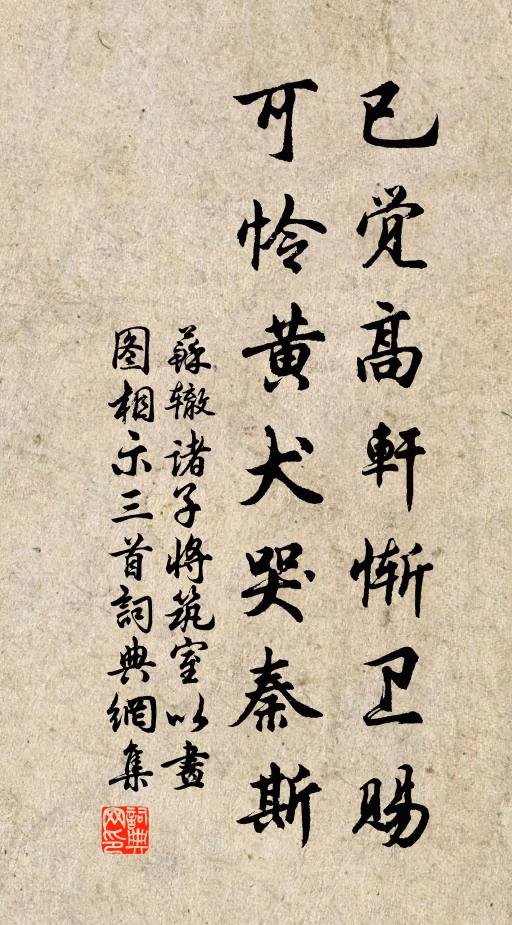 已觉高軒惭卫赐
可怜黄犬哭秦斯
蘇辙诸子将筑室以畫
图相示三首詞典網集
詞典
网印